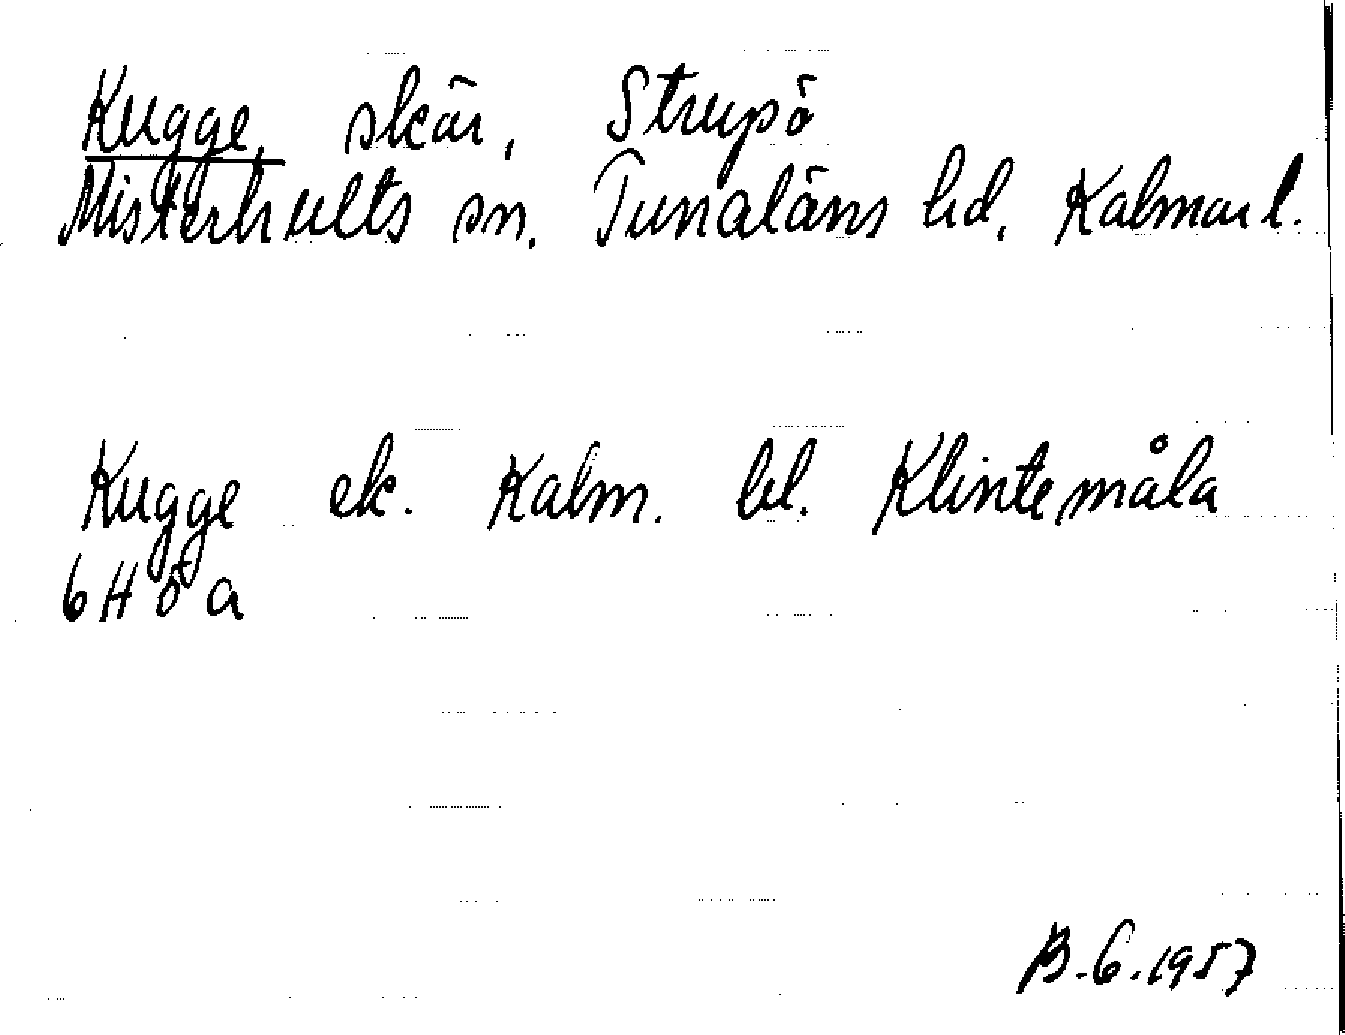 Kugge, skär, Strupö
Misterhults sn. Tunaläns hd, Kalmar l.
Kugge ek. Kalm. bl. Klintemåla
6 H ö a
B.G.1957